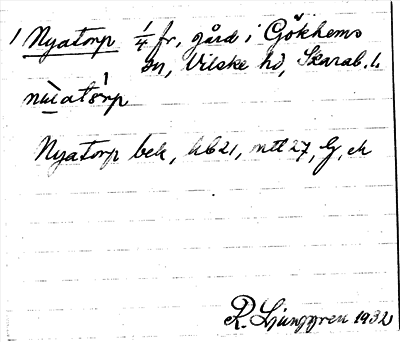 1 Nyatorp 1/4 fr, gård i Gökhems
sn, Vilske hd, Skarab. l.
Nyatorp bek, hb21, mtl27, G, ek
R. Ljunggren 1932